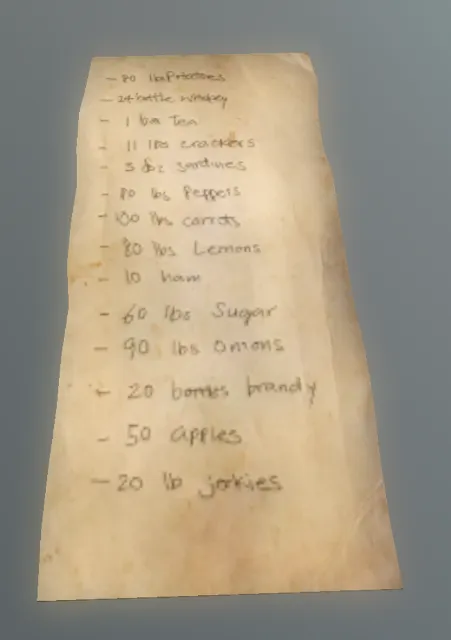 - 80 lbs Potatoes
- 24 bottle whiskey
- 1 lbs Tea
- 11 lbs crackers
- 3 doz sardines
- 80 lbs Peppers
- 100 lbs carrots
- 80 lbs Lemons
- 10 ham
- 60 lbs Sugar
- 90 lbs onions
- 20 bottles brandy
- 50 apples
- 20 lb jerkies